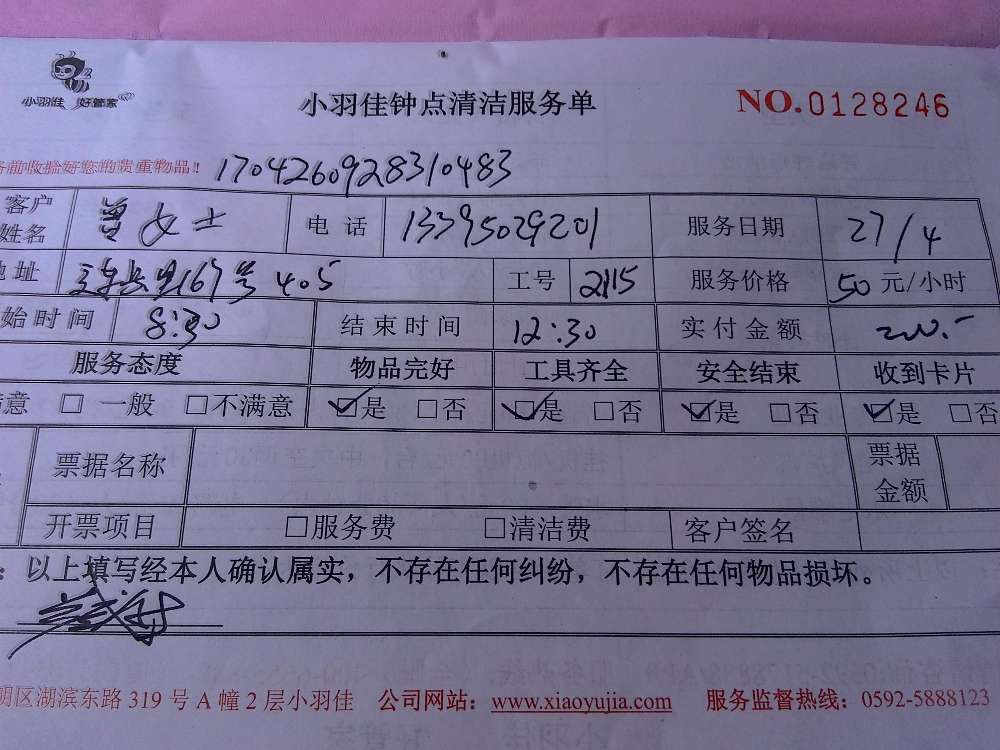 小羽佳 好管家
小羽佳钟点清洁服务单 NO.0128246
务前收捡好您的贵重物品! 1704260928310483
客户姓名 曾女士 电话 13395029201 服务日期 27/4
地址 167号405 工号 2115 服务价格 50元/小时
始时间 8:30 结束时间 12:30 实付金额 200.-
服务态度 物品完好 工具齐全 安全结束 收到卡片
满意 □ 一般 □不满意 ☑是 □否 ☑是 □否 ☑是 □否 ☑是 □否
票据名称 票据金额
开票项目 □服务费 □清洁费 客户签名
:以上填写经本人确认属实，不存在任何纠纷，不存在任何物品损坏。
明区湖滨东路 319 号 A 幢 2 层小羽佳 公司网站：www.xiaoyujia.com 服务监督热线：0592-5888123